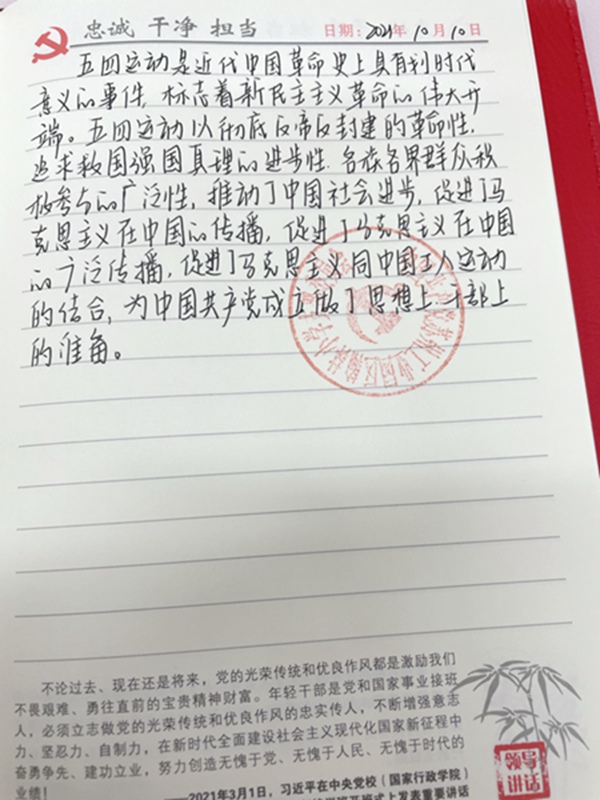 忠诚 干净 担当
日期：2021年10月10日
五四运动是近代中国革命史上具有划时代
意义的事件，标志着新民主主义革命的伟大开
端。五四运动以彻底反帝反封建的革命性，
追求救国强国真理的进步性，各族各界群众积
极参与的广泛性，推动了中国社会进步，促进了马
克思主义在中国的传播，促进了马克思主义在中国
的广泛传播，促进了马克思主义同中国工人运动
的结合，为中国共产党成立做了思想上干部上
的准备。
不论过去、现在还是将来，党的光荣传统和优良作风都是激励我们
不畏艰难、勇往直前的宝贵精神财富。年轻干部是党和国家事业接班
人，必须立志做党的光荣传统和优良作风的忠实传人，不断增强意志
力、坚忍力、自制力，在新时代全面建设社会主义现代化国家新征程中
奋勇争先、建功立业，努力创造无愧于党、无愧于人民、无愧于时代的
业绩！
——2021年3月1日，习近平在中央党校（国家行政学院）
班开班式上发表重要讲话